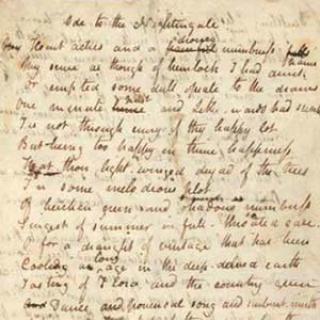 Ode to the Nightingale
drowsy
My Heart aches and a painful numbness falls
pains
My sense as though of hemlock I had drunk
Or emptied some dull opiate to the drains
past
One minute hence and Lethe-wards had sunk
Tis not through envy of thy happy lot
But being too happy in thine happiness
That thou light-winged dryad of the trees
In some melodious plot
Of beechen green and shadows numberless
Singest of summer in full-throated ease.
O for a draught of vintage that has been
long
Cooling an age in the deep-delved earth
Tasting of Flora and the country green
And Dance, and provençal song and sunburnt mirth